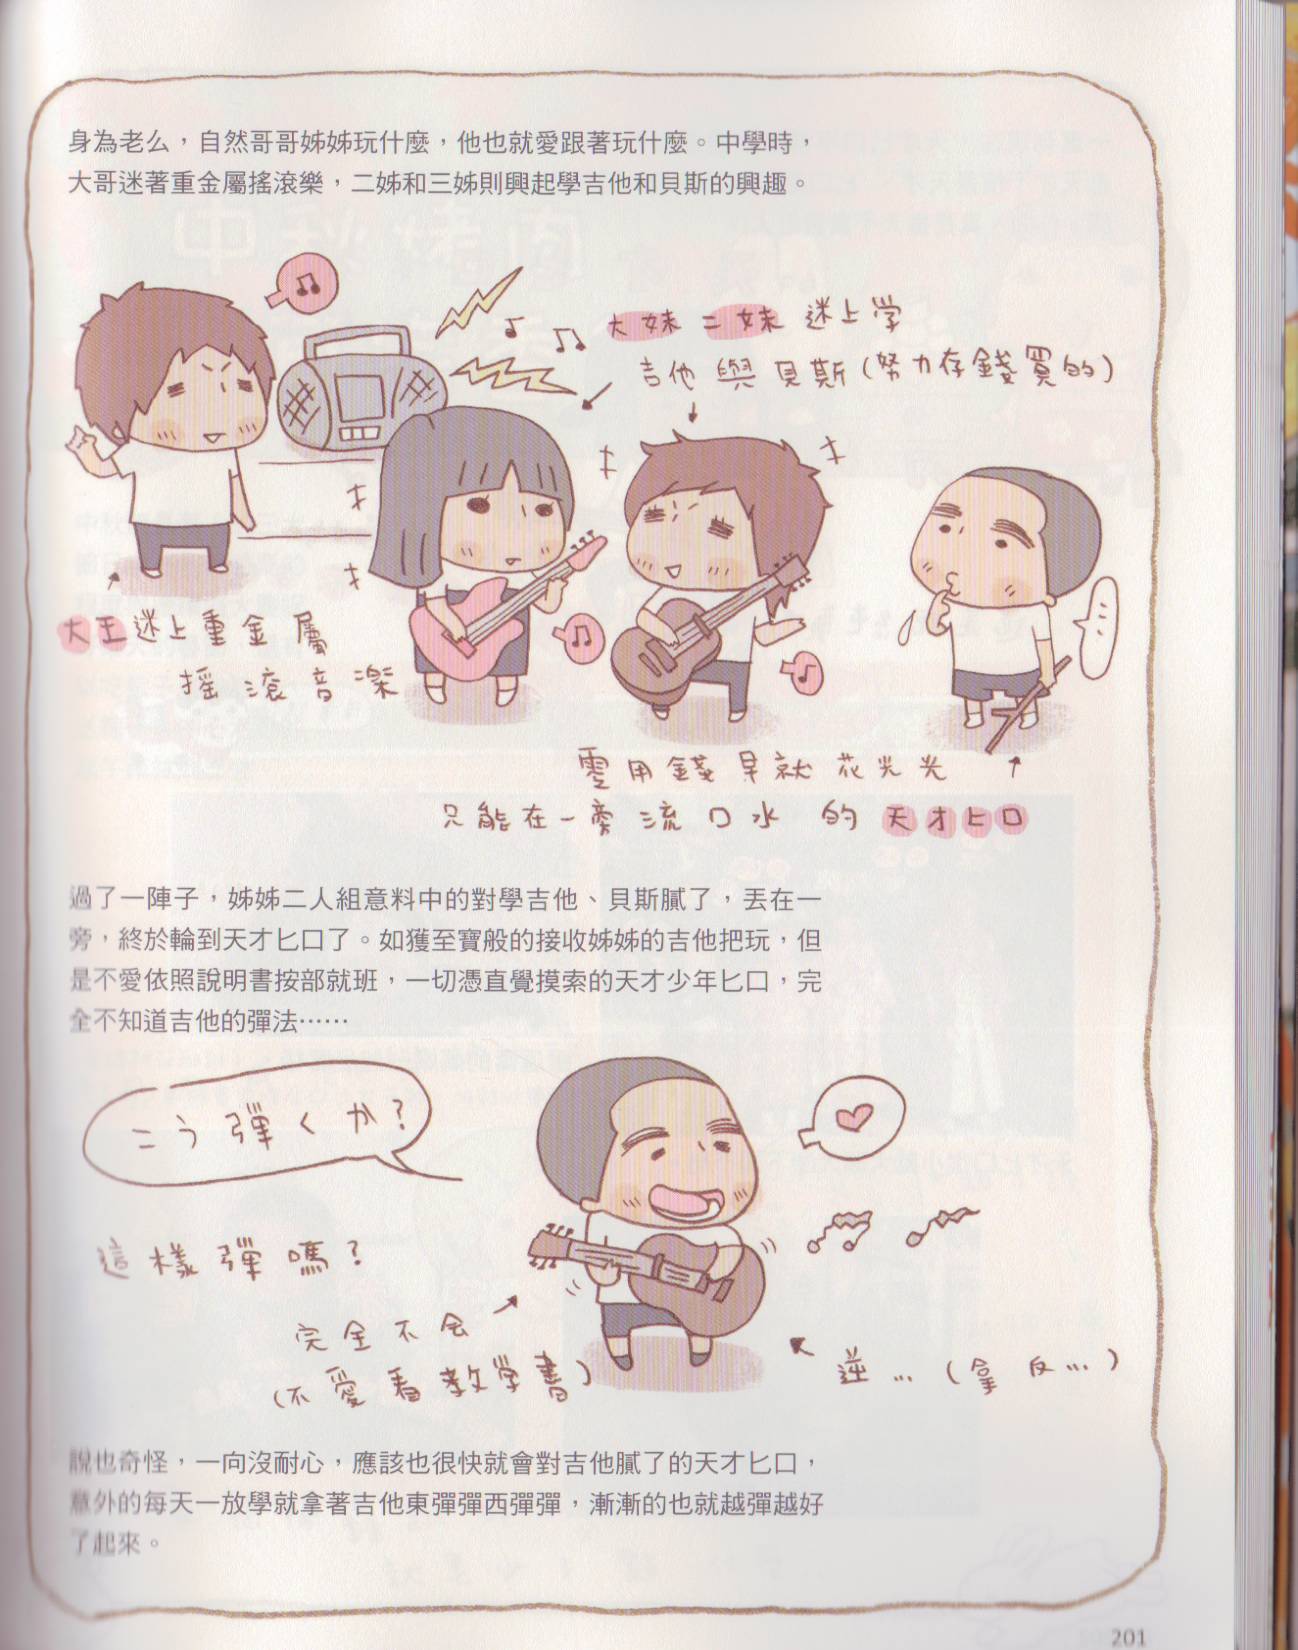 身為老么，自然哥哥姊姊玩什麼，他也就愛跟著玩什麼。中學時，
大哥迷著重金屬搖滾樂，二姊和三姊則興起學吉他和貝斯的興趣。
大妹二妹迷上学
吉他與貝斯(努力存錢買的)
大王迷上重金屬
搖滾音楽
零用錢早就花光光
只能在一旁流口水的天才ヒロ
過了一陣子，姊姊二人組意料中的對學吉他、貝斯膩了，丟在一
旁，終於輪到天才ヒロ了。如獲至寶般的接收姊姊的吉他把玩，但
是不愛依照說明書按部就班，一切憑直覺摸索的天才少年ヒロ，完
全不知道吉他的彈法……
こう弾くか?
這樣弾嗎?
完全不会
(不愛看教学書)
逆…(拿反…)
說也奇怪，一向沒耐心，應該也很快就會對吉他膩了的天才ヒロ，
意外的每天一放學就拿著吉他東彈彈西彈彈，漸漸的也就越彈越好
了起來。
201